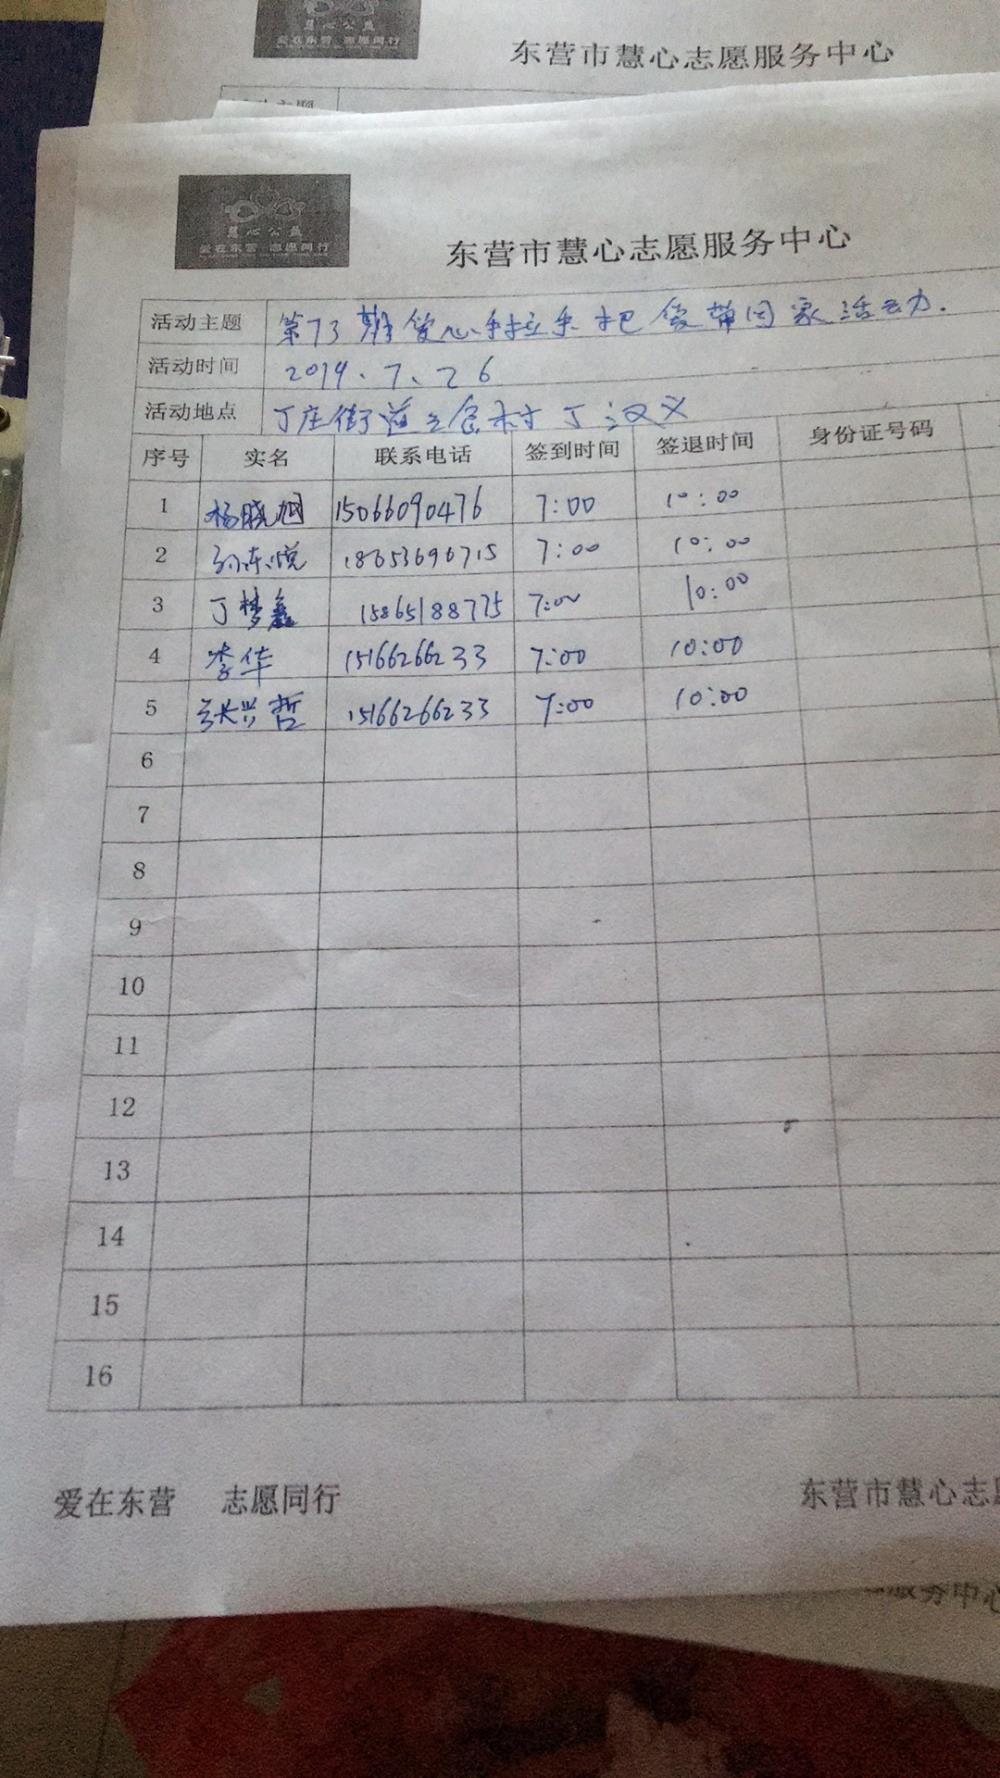 慧心公益
爱在东营 志愿同行
东营市慧心志愿服务中心
慧心公益
爱在东营 志愿同行
东营市慧心志愿服务中心
活动主题 第73期爱心手拉手把爱带回家活动.
活动时间 2019.7.26
活动地点 丁庄街道 村丁汉义
序号 实名 联系电话 签到时间 签退时间 身份证号码
1 杨晓旭 15066090476 7:00 10:00
2 孙东悦 18653696715 7:00 10:00
3 丁梦鑫 15865188775 7:00 10:00
4 李华 15166266233 7:00 10:00
5 张兴哲 15166266233 7:00 10:00
6
7
8
9
10
11
12
13
14
15
16
爱在东营 志愿同行 东营市慧心志
服务中心